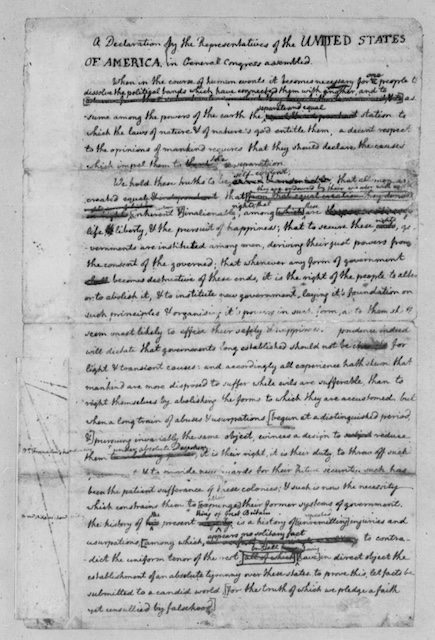 A Declaration by the Representatives of the UNITED STATES
OF AMERICA, in General Congress assembled.
When in the course of human events it becomes necessary for one people to
dissolve the political bands which have connected them with another, and to as
separate and equal
sume among the powers of the earth the station to
which the laws of nature & of nature's god entitle them, a decent respect
to the opinions of mankind requires that they should declare the causes
which impel them to the separation.
We hold these truths to be self-evident; that all men are
created equal that they are endowed by their creator with
inherent & inalienable among are
life, liberty, & the pursuit of happiness; that to secure these go
vernments are instituted among men, deriving their just powers from
the consent of the governed; that whenever any form of government
becomes destructive of these ends, it is the right of the people to alter
or to abolish it, & to institute new government, laying it's foundation on
such principles & organising it's powers in such form, as to them shall
seem most likely to effect their safety & happiness. prudence indeed
will dictate that governments long established should not be for
light & transient causes: and accordingly all experience hath shewn that
mankind are more disposed to suffer while evils are sufferable, than to
right themselves by abolishing the forms to which they are accustomed. but
when a long train of abuses & usurpations [begun at a distinguished period
& pursuing invariably the same object, evinces a design to reduce
under absolute Despotism
them it is their right, it is their duty, to throw off such
& to provide new guards for their future security. such has
been the patient sufferance of these colonies; & such is now the necessity
which constrains them to [expunge] their former systems of government.
King of Great Britain
the history of present is a history of [unremitting] injuries and
usurpations, [among which, appears no solitary fact to contra-
dict the uniform tenor of the rest, all of which [have] in direct object the
establishment of an absolute tyranny over these states. to prove this, let facts be
submitted to a candid world [for the truth of which we pledge a faith
yet unsullied by falsehood]